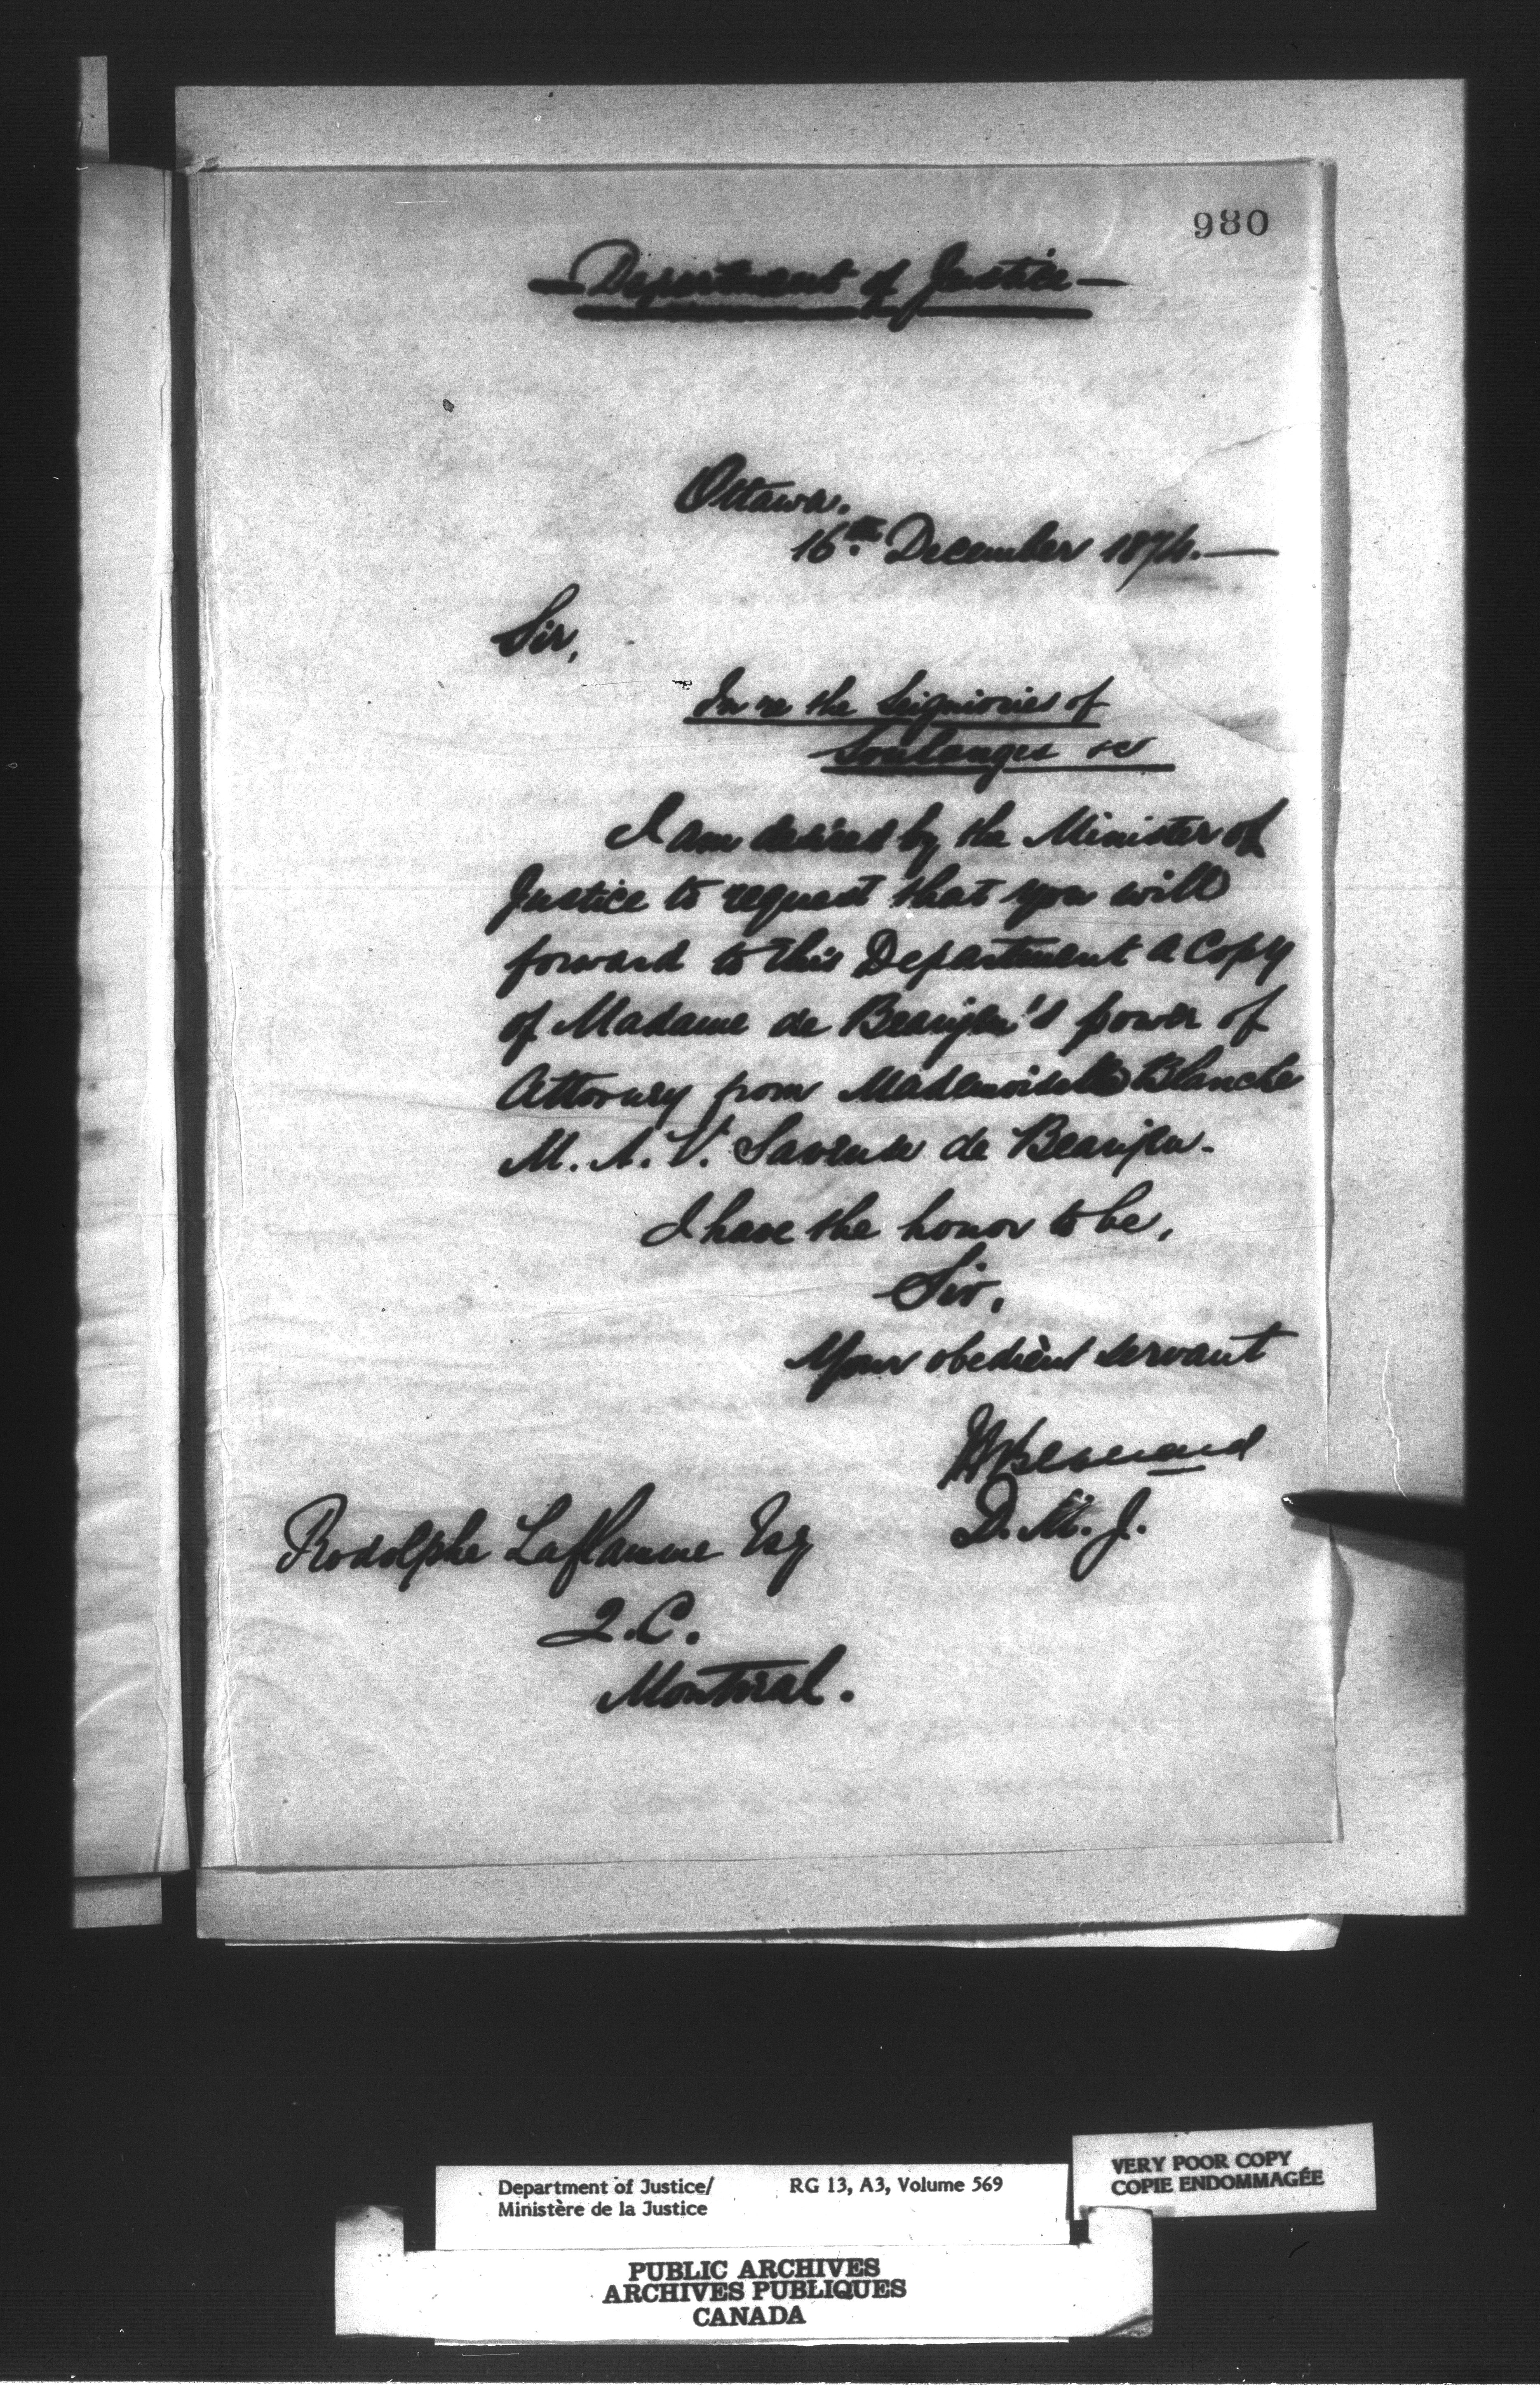 980
— Department of Justice —
Ottawa.
16th December 1874. —
Sir,
In re the Seigniories of
Soulanges &c
I am desired by the Minister of
Justice to request that you will
forward to this Department a Copy
of Madame de Beaujeu's power of
Attorney from Mademoiselle Blanche
M. A. V. Saveuse de Beaujeu.
I have the honor to be,
Sir,
Your obedient servant
H Bernard
D. M. J.
Rodolphe Laflamme Esq
Q. C.
Montreal.
Department of Justice/
Ministère de la Justice
RG 13, A3, Volume 569
VERY POOR COPY
COPIE ENDOMMAGÉE
PUBLIC ARCHIVES
ARCHIVES PUBLIQUES
CANADA